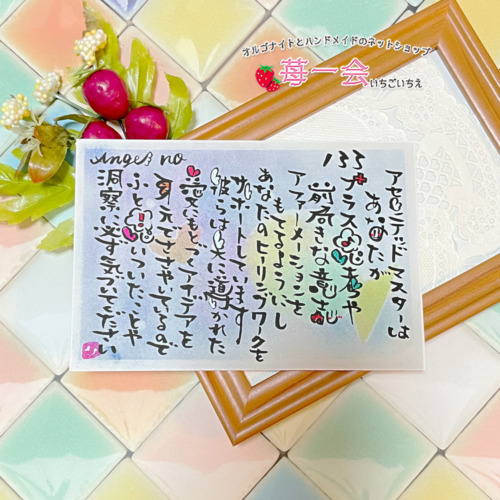 オルゴナイトとハンドメイドのネットショップ
苺一会いちごいちえ
Angel no
133
アセンデッドマスターは
あなたが
プラス思考や
前向きな意志
もてるようにし
アファーメーションを
あなたのヒーリングワークを
サポートしています
彼らは天に導かれた
愛にもとづくアイデアを
耳元でささやいているので
ふと思いついたことや
洞察に必ず気づいてください